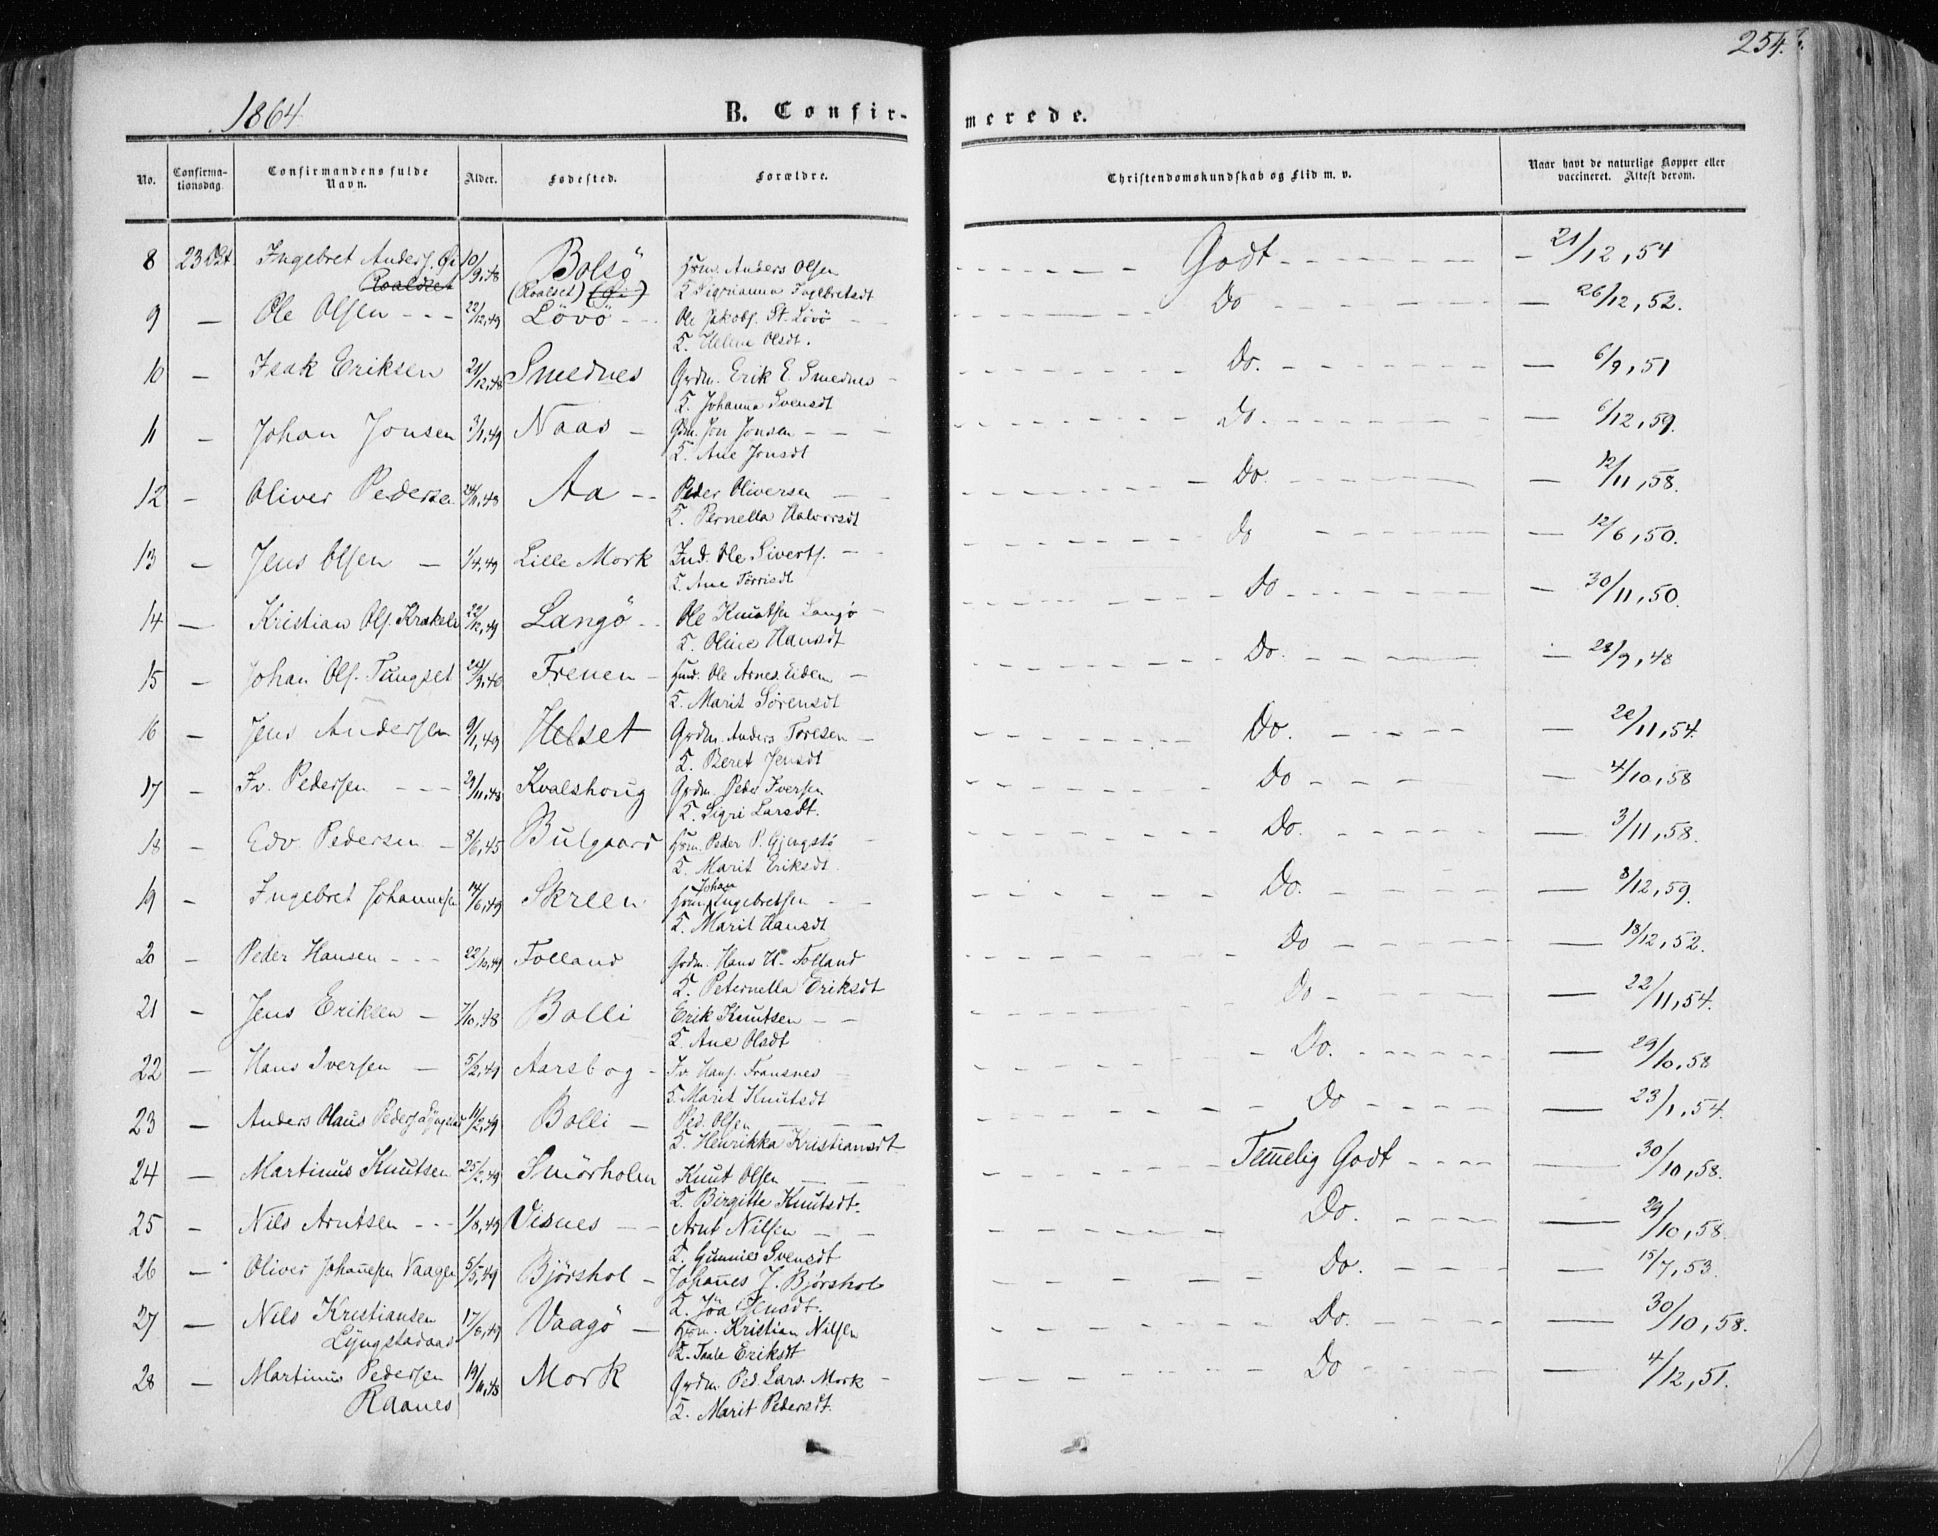 254.
1864.
B. Confir-
merede.
No. Confirma-tionsdag. Confirmandens fulde Navn. Alder. Fødested. Forældre. Christendomskundskab og Flid m. v. Naar havt de naturlige Kopper eller vaccineret. Attest derom.
8 23 Oct. Ingebret Anders. 10/9, 48 Bolsö Hsm. Anders Olsen Godt 21/12, 54
Roaldset (Roalset) (Øi) K. Sigrianna Ingebretsdt
9 — Ole Olsen 22/12, 49 Lövö Ole Jakobs. St. Lövö Do 26/12, 52.
K. Helene Olsdt.
10 — Isak Eriksen 21/12, 48 Smednes Grdm. Erik E. Smednes Do. 6/9, 51
K. Johanna Svensdt
11 — Johan Jonsen 3/1, 49 Naas Gdm. Jon Jonsen Do. 6/12, 59.
K. Ane Jonsdt
12 — Oliver Pedersen 24/11, 48 Aa Peder Oliversen Do. 12/11, 58.
K. Pernella Halvorsdt
13 — Jens Olsen 1/4, 49 Lille Mork Ind. Ole Siverts. Do 12/6, 50.
K. Ane Torrisdt
14 — Kristian Ols. Krakeli 22/12, 49 Langö Ole Knutsen Langö Do 30/11, 50.
K. Oline Hansdt
15 — Johan Ols. Tungset 24/3, 48 Frenen Hsm. Ole Arnes. Eiden Do. 28/9, 48
K. Marit Sörensdt
16 — Jens Andersen 9/1, 49 Helset Grdm. Anders Toresen Do. 20/11, 54.
K. Beret Jensdt
17 — Iv. Pedersen 29/11, 48 Kvalshoug Grdm. Peder Iversen Do 4/10, 58
K. Sigri Larsdt.
18 — Edv. Pedersen 8/6, 45 Bulgaard Hsm. Peder P. Gjengstö Do. 3/11, 58.
K. Marit Eriksdt.
19 — Ingebret Johannesen 14/6, 49 Skreen Hsm. Johan Ingebretsen Do. 8/12, 59.
K. Marit Hansdt
20 — Peder Hansen 22/10, 49 Folland Grdm. Hans H. Folland Do 18/12, 52.
K. Peternella Eriksdt
21 — Jens Eriksen 7/10, 48 Bolli Erik Knutsen Do 22/11, 54.
K. Ane Olsdt
22 — Hans Iversen 5/2, 49 Aarsbog Iv. Hans. Fransnes Do. 29/10, 58
K. Marit Knutsdt
23 — Anders Olaus Peders. 11/2, 49 Bolli Ped. Olsen Do 23/1, 54.
K. Henrikka Kristiansdt
24 — Martinus Knutsen 25/2, 49 Smörholm Knut Olsen Temelig Godt 30/10, 58.
K. Birgitte Knutsdt.
25 — Nils Arntsen 1/8, 49 Visnes Arnt Nilsen Do. 29/10, 58.
K. Gunnild Svensdt
26 — Oliver Johannesen Vaagen 5/5, 49 Björshol Johannes J. Björshol Do. 15/7, 53.
K. Jöa Jensdt.
27 — Nils Kristiansen 17/6, 49 Vaagö Hsm. Kristian Nilsen Do. 30/10, 58.
Lÿngstadaas K. Taale Eriksdt
28 — Martinus Pedersen 19/11, 48 Mork Grdm. Ped. Lars. Mork Do 4/12, 51.
Raanes K. Marit Pedersdt.